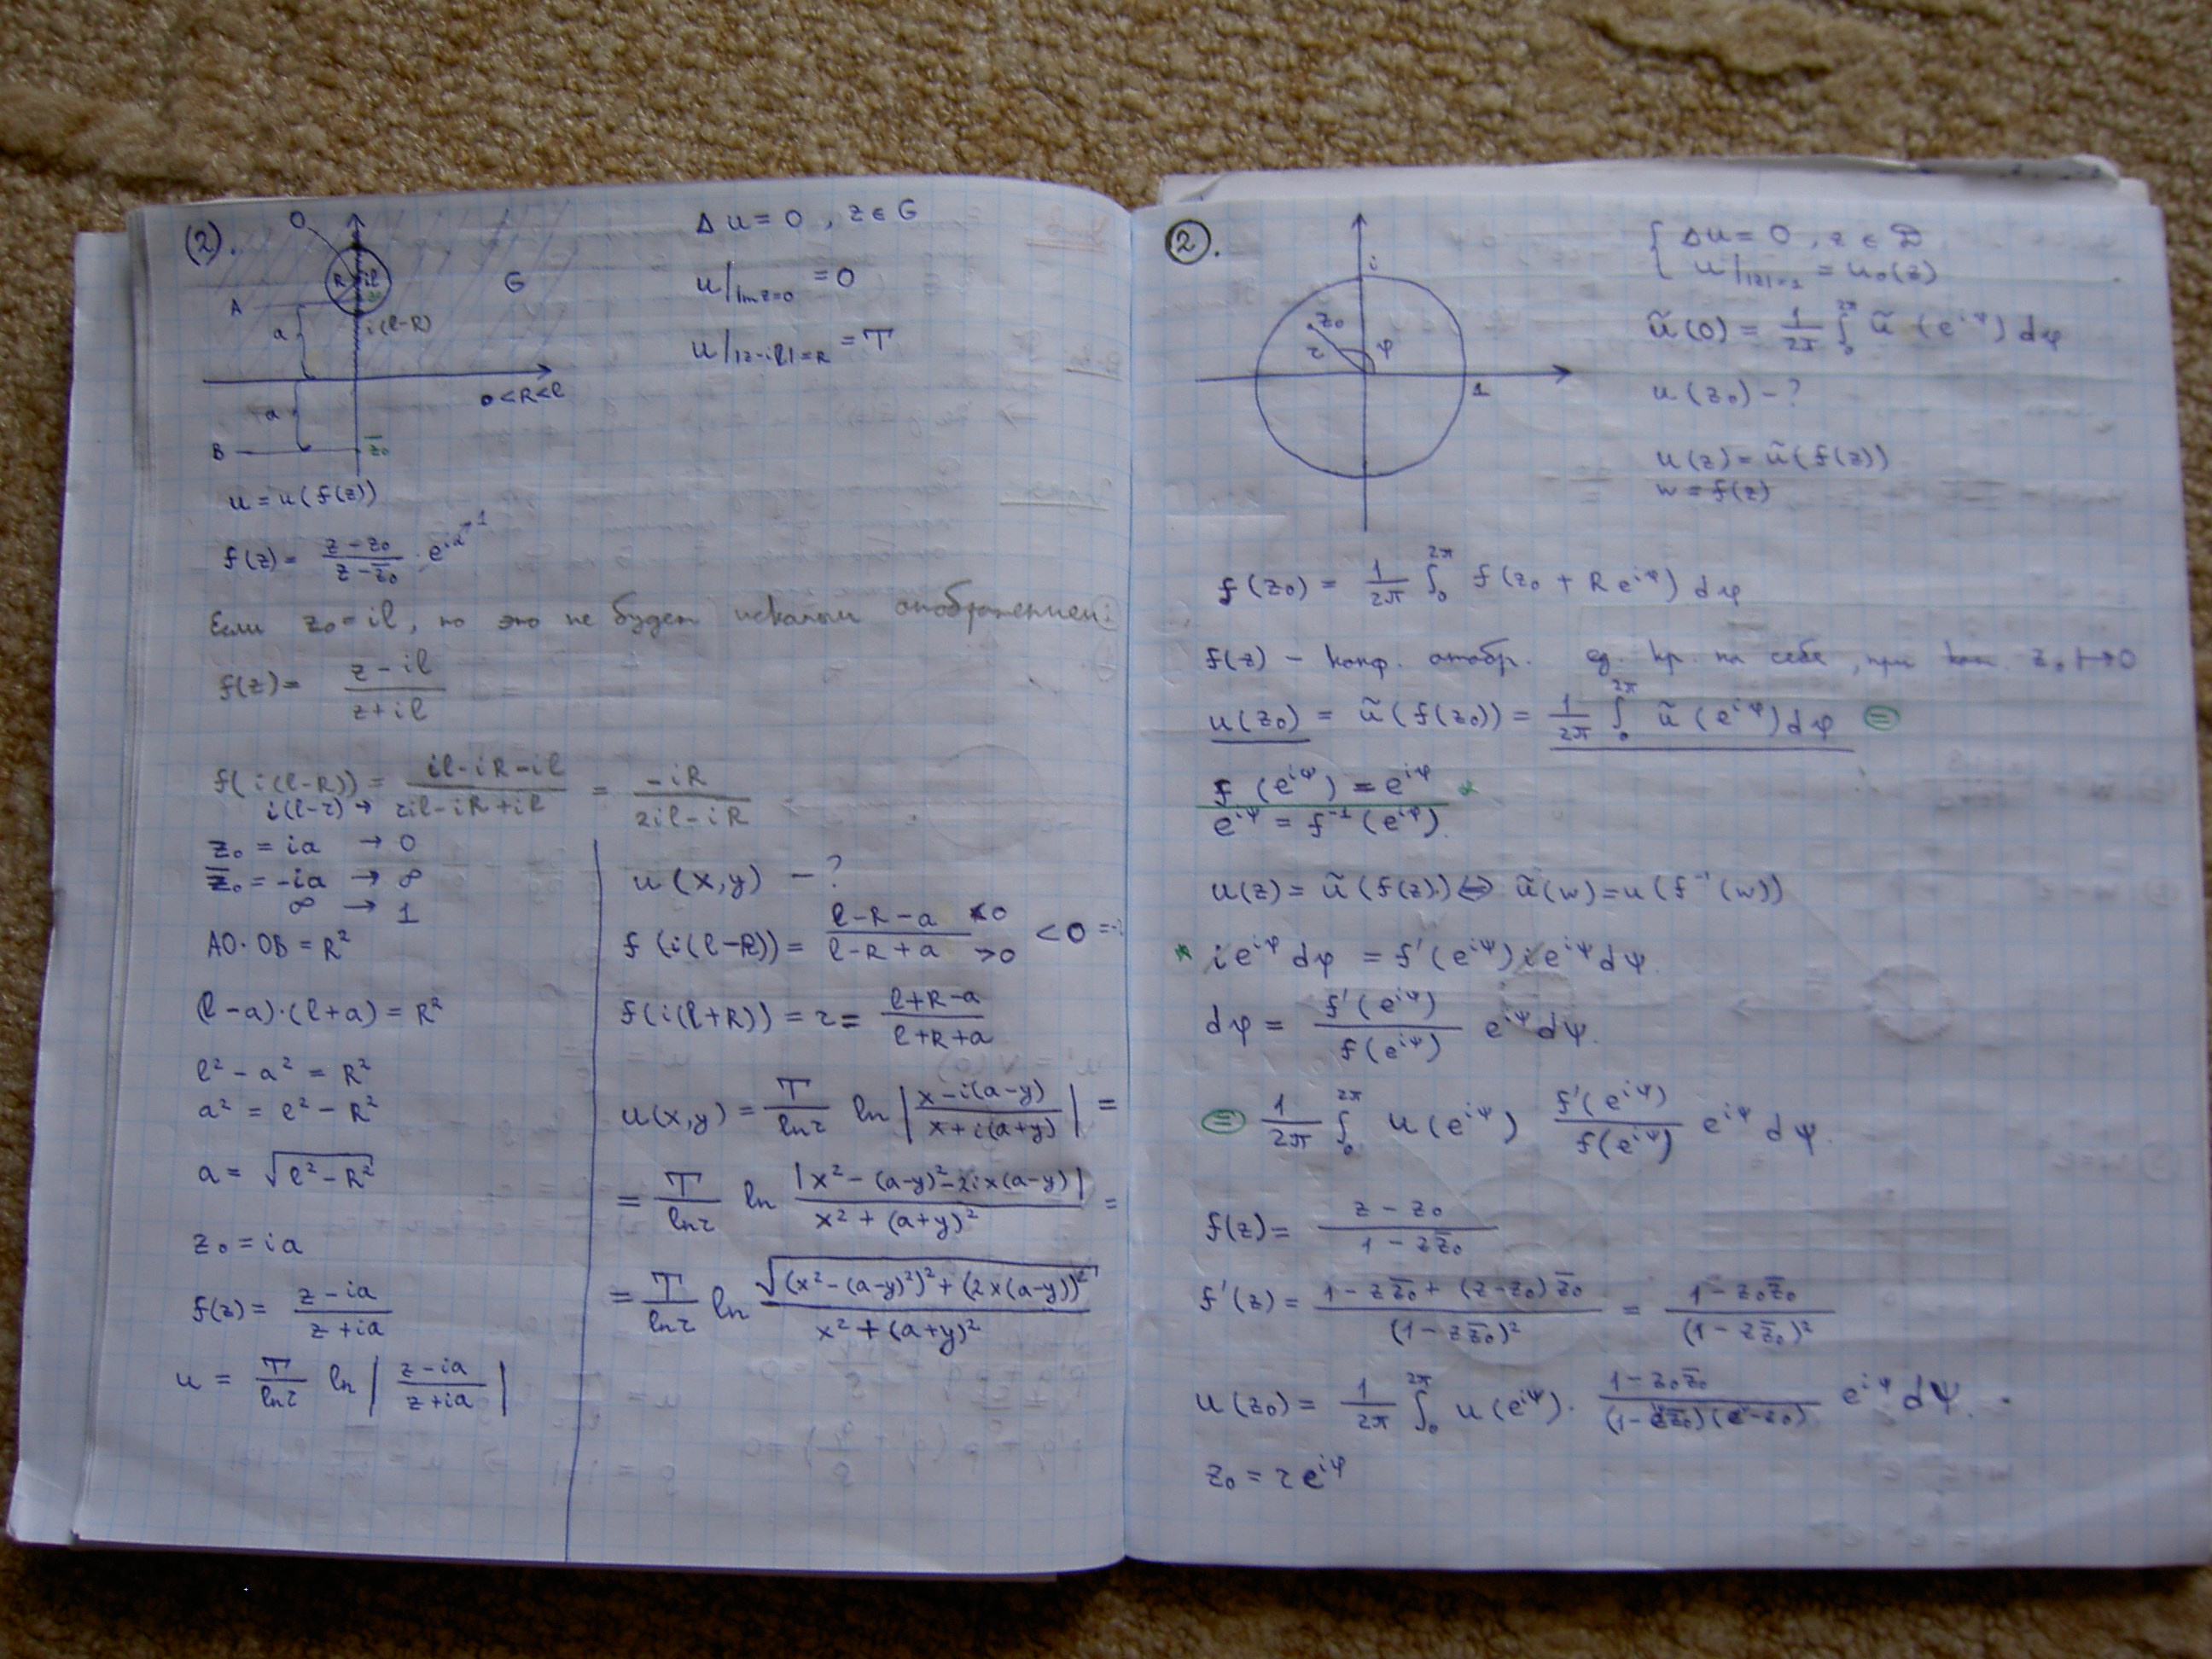 (2).
O
R
il
G
A
a
i(l-R)
0<R<l
a
B
z̄₀
Δu = 0 , z ∈ G
u|Im z=0 = 0
u||z-il|=R = T
u = u(f(z))
f(z) = (z - z₀)/(z - z̄₀) · e^{iα} → 1
Если z₀ = il, то это не будет искомым отображением:
f(z) = (z - il)/(z + il)
f(i(l-R)) = (il - iR - il)/(2il - iR + il) = (-iR)/(2il - iR)
i(l-r) →
z₀ = ia → 0
z̄₀ = -ia → ∞
∞ → 1
AO·OB = R²
(l-a)·(l+a) = R²
l² - a² = R²
a² = l² - R²
a = √(l² - R²)
z₀ = ia
f(z) = (z - ia)/(z + ia)
u = T/ln r ln |(z - ia)/(z + ia)|
u(x,y) - ?
f(i(l-R)) = (l-R-a)/(l-R+a) <0 >0 < 0 =
f(i(l+R)) = r = (l+R-a)/(l+R+a)
u(x,y) = T/ln r ln |(x - i(a-y))/(x + i(a+y))| =
= T/ln r ln |x² - (a-y)² - 2ix(a-y)|/(x² + (a+y)²) =
= T/ln r ln √((x² - (a-y)²)² + (2x(a-y))²)/(x² + (a+y)²)
(2).
i
z₀
r
φ
1
{ Δu = 0 , z ∈ D
u||z|=1 = u₀(z)
ũ(0) = 1/2π ∫₀^{2π} ũ(e^{iφ}) dφ
u(z₀) - ?
u(z) = ũ(f(z))
w = f(z)
f(z₀) = 1/2π ∫₀^{2π} f(z₀ + Re^{iφ}) dφ
f(z) - конф. отобр. ед. кр. на себя, при кот. z₀ ↦ 0
u(z₀) = ũ(f(z₀)) = 1/2π ∫₀^{2π} ũ(e^{iφ}) dφ =
f(e^{iψ}) = e^{iφ} *
e^{iψ} = f⁻¹(e^{iφ}).
u(z) = ũ(f(z)) ⇔ ũ(w) = u(f⁻¹(w))
* ie^{iφ} dφ = f'(e^{iψ}) ie^{iψ} dψ.
dφ = f'(e^{iψ})/f(e^{iψ}) e^{iψ} dψ.
= 1/2π ∫₀^{2π} u(e^{iψ}) f'(e^{iψ})/f(e^{iψ}) e^{iψ} dψ.
f(z) = (z - z₀)/(1 - zz̄₀)
f'(z) = (1 - zz̄₀ + (z - z₀)z̄₀)/(1 - zz̄₀)² = (1 - z₀z̄₀)/(1 - zz̄₀)²
u(z₀) = 1/2π ∫₀^{2π} u(e^{iψ}) · (1 - z₀z̄₀)/((1 - z̄₀)( - z₀)) e^{iψ} dψ.
z₀ = re^{iφ}